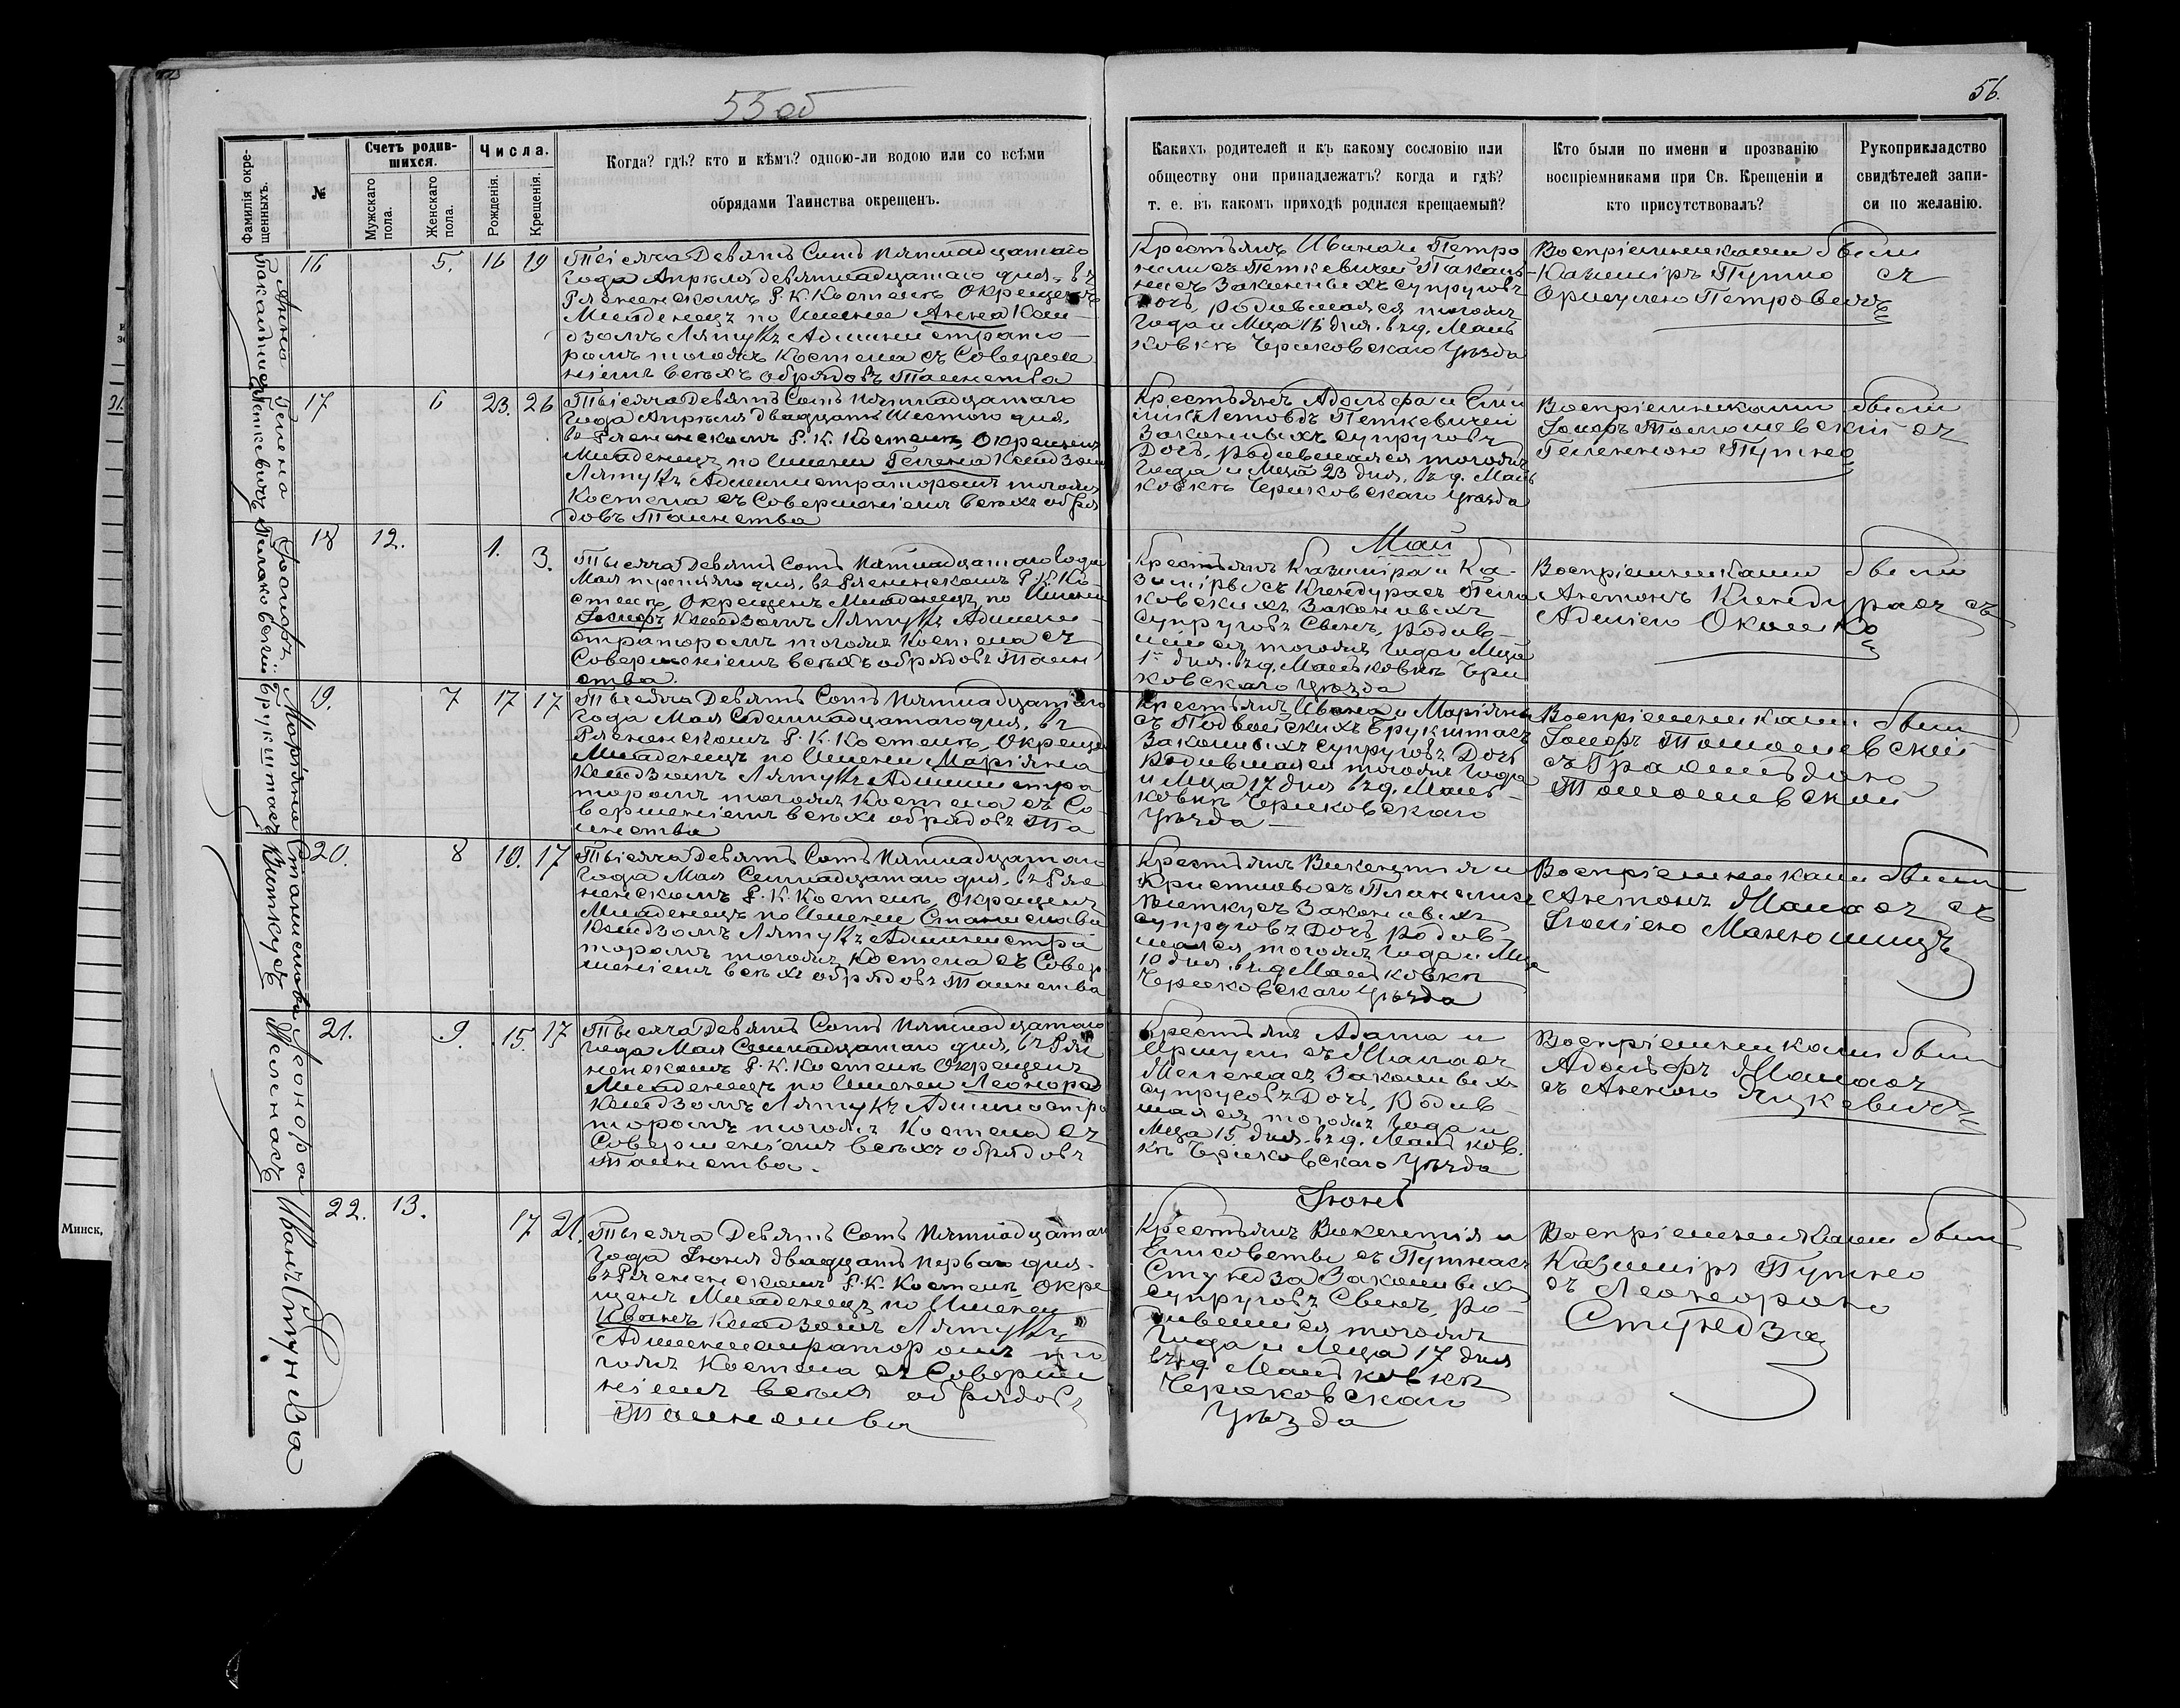 55 об
56.
Фамилія окрещенныхъ.
№
Счетъ родившихся.
Мужскаго пола.
Женскаго пола.
Числа.
Рожденія.
Крещенія.
Когда? гдѣ? кто и кѣмъ? одною-ли водою или со всѣми
обрядами Таинства окрещенъ.
Какихъ родителей и къ какому сословію или
обществу они принадлежатъ? когда и гдѣ?
т. е. въ какомъ приходѣ родился крещаемый?
Кто были по имени и прозванію
воспріемниками при Св. Крещеніи и
кто присутствовалъ?
Рукоприкладство
свидѣтелей запи-
си по желанію.
Анна
16 5. 16 19
Тысяча Девять Сотъ Пятнадцатаго
Года Апрѣля девятнадцатаго дня, въ
Р. К. Костелѣ Окрещенъ
Младенецъ по Имени Анна Ксен-
дзомъ Админи страто-
ромъ тогожъ Костела съ Соверше
ніемъ всѣхъ обрядовъ Таинства
Крестьянъ Ивана и Петро
нели съ Петкевичей
Законныхъ супруговъ
Дочь, родившаяся тогожъ
Года и Мца 16 дня. въ д. Мань
ковкѣ Чериковскаго Уѣзда
Воспріемниками были
Казиміръ Путно съ
Петровичъ
Гелена Петкевичъ
17 6 23. 26
Тысяча Девять Сотъ Пятнадцатаго
Года Апрѣля двадцать Шестого дня,
въ Р. К. Костелѣ, Окрещенъ
Младенецъ по Имени Гелена Ксендзомъ
Администраторомъ тогожъ
Костела съ Совершеніемъ всѣхъ обря
довъ Таинства
Крестьянъ Адольфа и
Петкевичей
Законныхъ супруговъ
Дочь, Родившаяся тогожъ
Года и Мца 23 дня, въ д. Мань
ковкѣ Чериковскаго Уѣзда
Воспріемниками были
Іосифъ Томашевскій съ
Геленною Путно
Май
Іосифъ
18 12. 1. 3.
Тысяча Девять Сотъ Пятнадцатаго Года
Мая третьяго дня, въ Р. К. Ко-
стелѣ, Окрещенъ Младенецъ по Имени
Іосифъ Ксендзомъ Админи-
страторомъ тогожъ Костела съ
Совершеніемъ всѣхъ обрядовъ Таин
ства.
Крестьянъ Казиміра и Ка-
зиміры съ
ковскихъ Законныхъ
супруговъ Сынъ, Родив-
шійся тогожъ Года и Мца
1го дня. въ д. Маньковкѣ Чери
ковскаго Уѣзда
Воспріемниками были
Антонъ съ
Маріяна Брукштасъ
19. 7 17 17
Тысяча Девять Сотъ Пятнадцатаго
Года Мая Семнадцатаго дня, въ
Р. К. Костелѣ, Окрещенъ
Младенецъ по Имени Маріяна
Ксендзомъ Администра
торомъ тогожъ Костела съ Со-
вершеніемъ всѣхъ обрядовъ Та
инства
Крестьянъ Ивана и Маріяны
съ Подвойскихъ Брукштасъ
Законныхъ супруговъ Дочь
Родившаяся тогожъ Года
и Мца 17 дня въ д. Мань-
ковкѣ Чериковскаго
Уѣзда
Воспріемниками были
Іосифъ Томашевскій
съ
Томашевской
Станислава
20. 8 10. 17
Тысяча Девять Сотъ Пятнадцатаго
Года Мая Семнадцатаго дня, въ
Р. К. Костелѣ, Окрещенъ
Младенецъ по Имени Станислава
Ксендзомъ Администра
торомъ тогожъ Костела съ Совер-
шеніемъ всѣхъ обрядовъ Таинства
Крестьянъ Викентія и
Законныхъ
супруговъ Дочь, Родив-
шаяся тогожъ Года и Мца
10 дня. въ д. Маньковкѣ
Чериковскаго Уѣзда
Воспріемниками были
Антонъ съ
Леонора Меленасъ
21. 9. 15. 17
Тысяча Девять Сотъ Пятнадцатаго
Года Мая Семнадцатаго дня, въ
Р. К. Костелѣ Окрещенъ
Младенецъ по Имени Леонора
Ксендзомъ Администра
торомъ тогожъ Костела съ
Совершеніемъ всѣхъ обрядовъ
Таинства.
Крестьянъ Адама и
Меленасъ Законныхъ
супруговъ Дочь, Родив-
шаяся тогожъ Года и
Мца 15 дня. въ д. Маньков.
кѣ Чериковскаго Уѣзда
Воспріемниками были
Адольфъ
съ Анною
Іюнь
Иванъ Стундза
22. 13. 17 21.
Тысяча Девять Сотъ Пятнадцатаго
Года Іюня двадцать перваго дня.
въ Р. К. Костелѣ Окре
щенъ Младенецъ по Имени
Иванъ Ксендзомъ
Администраторомъ то
гожъ Костела съ Соверше
ніемъ всѣхъ обрядовъ
Таинства
Крестьянъ Викентія и
Елисоветы съ Путнасъ
Стундза Законныхъ
супруговъ Сынъ, Ро-
дившійся тогожъ
Года и Мца 17 дня
въ д. Маньковкѣ
Чериковскаго
Уѣзда
Воспріемниками были
Казиміръ Путно
съ Леонорою
Стундза
Минскъ,